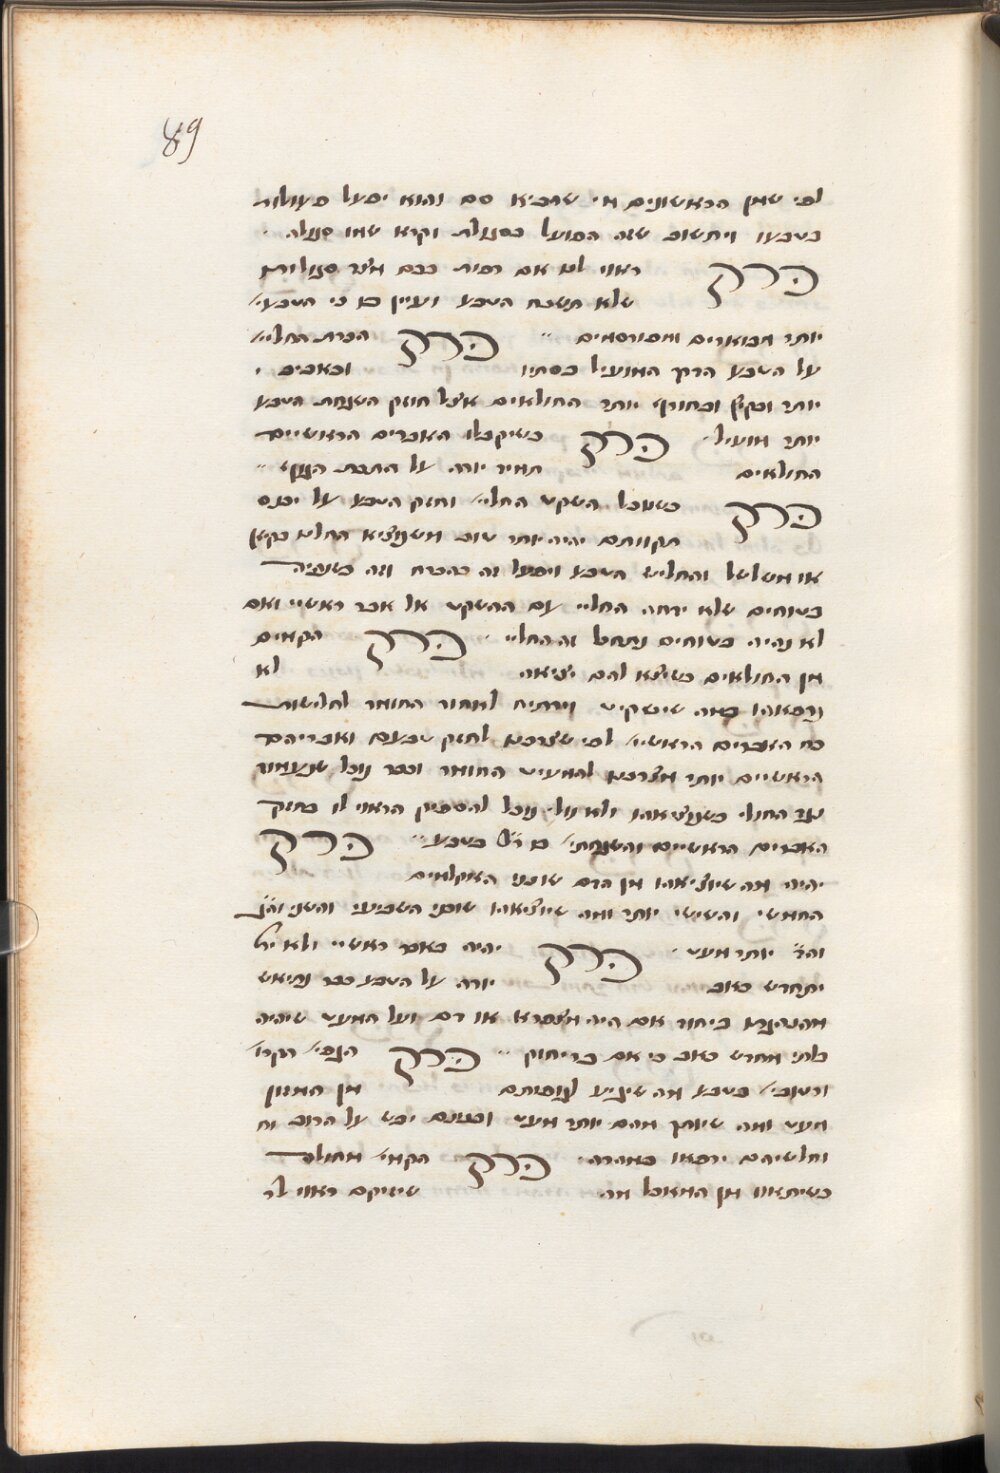 89
לפי שמן הראשונים מי שהביא סם והוא יפעל פעולות
בטבעו ויחשוב שזה הפועל בסגולת וקרא שמו סגולה
פרק ראוי לנו אם רפית בכם מצד סגולית
שלא תשכח הטבע ועיין בו כי הטבעי
יותר מבוארים ומפורסמים פרק הכרת החולי
על הטבע הדרך המועיל בסתיו ובאביב
יותר ובקיץ ובחורף יותר החולאים אצל חוזק השגחת הטבע
יותר מועיל פרק כשיקבלו האברים הראשיים
החולאים תמיד יורה על החבת הגוף
פרק כשעבר השקט החולי וחזק הטבע על יכנס
תקוותם יהיה יותר טוב משנוציא החולי בקיא
או משלשל והחליש הטבע ויפעל זה בהכרח וזה כשנהיה
בטוחים שלא ידחה החולי עם ההשקט אל אבר ראשיי ואם
לא נהיה בטוחים זה החולי פרק הקמים
מן החולאים כשיצא להם יציאה לא
נרפאהו במה שישקיט וירחיק לאחור החומר לחלישות
כח האברים הראשיי לפי שצרכנו לחזק טבעם ואבריהם
הראשיים יותר מצרכנו להמעיט החומר וכבר נוכל שנעמוד
עד החולי כשנוציאהו ולא נוכל להספיק הראוי לו בחוזק
האברים הראשיים והשגחתי בו בטבע פרק
יהיה מה שיוציאהו מן הדם שוכני האקלמים
החמשי והשישי יותר ומה שיוציאהו שוכני השביעי והשני
והד׳ יותר מעט פרק יהיה כאבר ראשיי ולא
יתחדש כאב יורה על הטבע כבר נתיאש
מההנהגה ביחוד אם היה מצטרא או דם ועל המעט שיהיה
בלתי מחדש כאב כי אם בריחוק פרק הנפשי הקרו
ורטובי בטבע מה שיגיע לגופותם מן המזון
מעט ומה שיותך מהם יותר מעט וטבעם יבש על הרוב
וחלשיהם ירפאו במהרה פרק הקמי מחולה
כשיתאוו מן המאכל מה שיזיקם ראוי לך